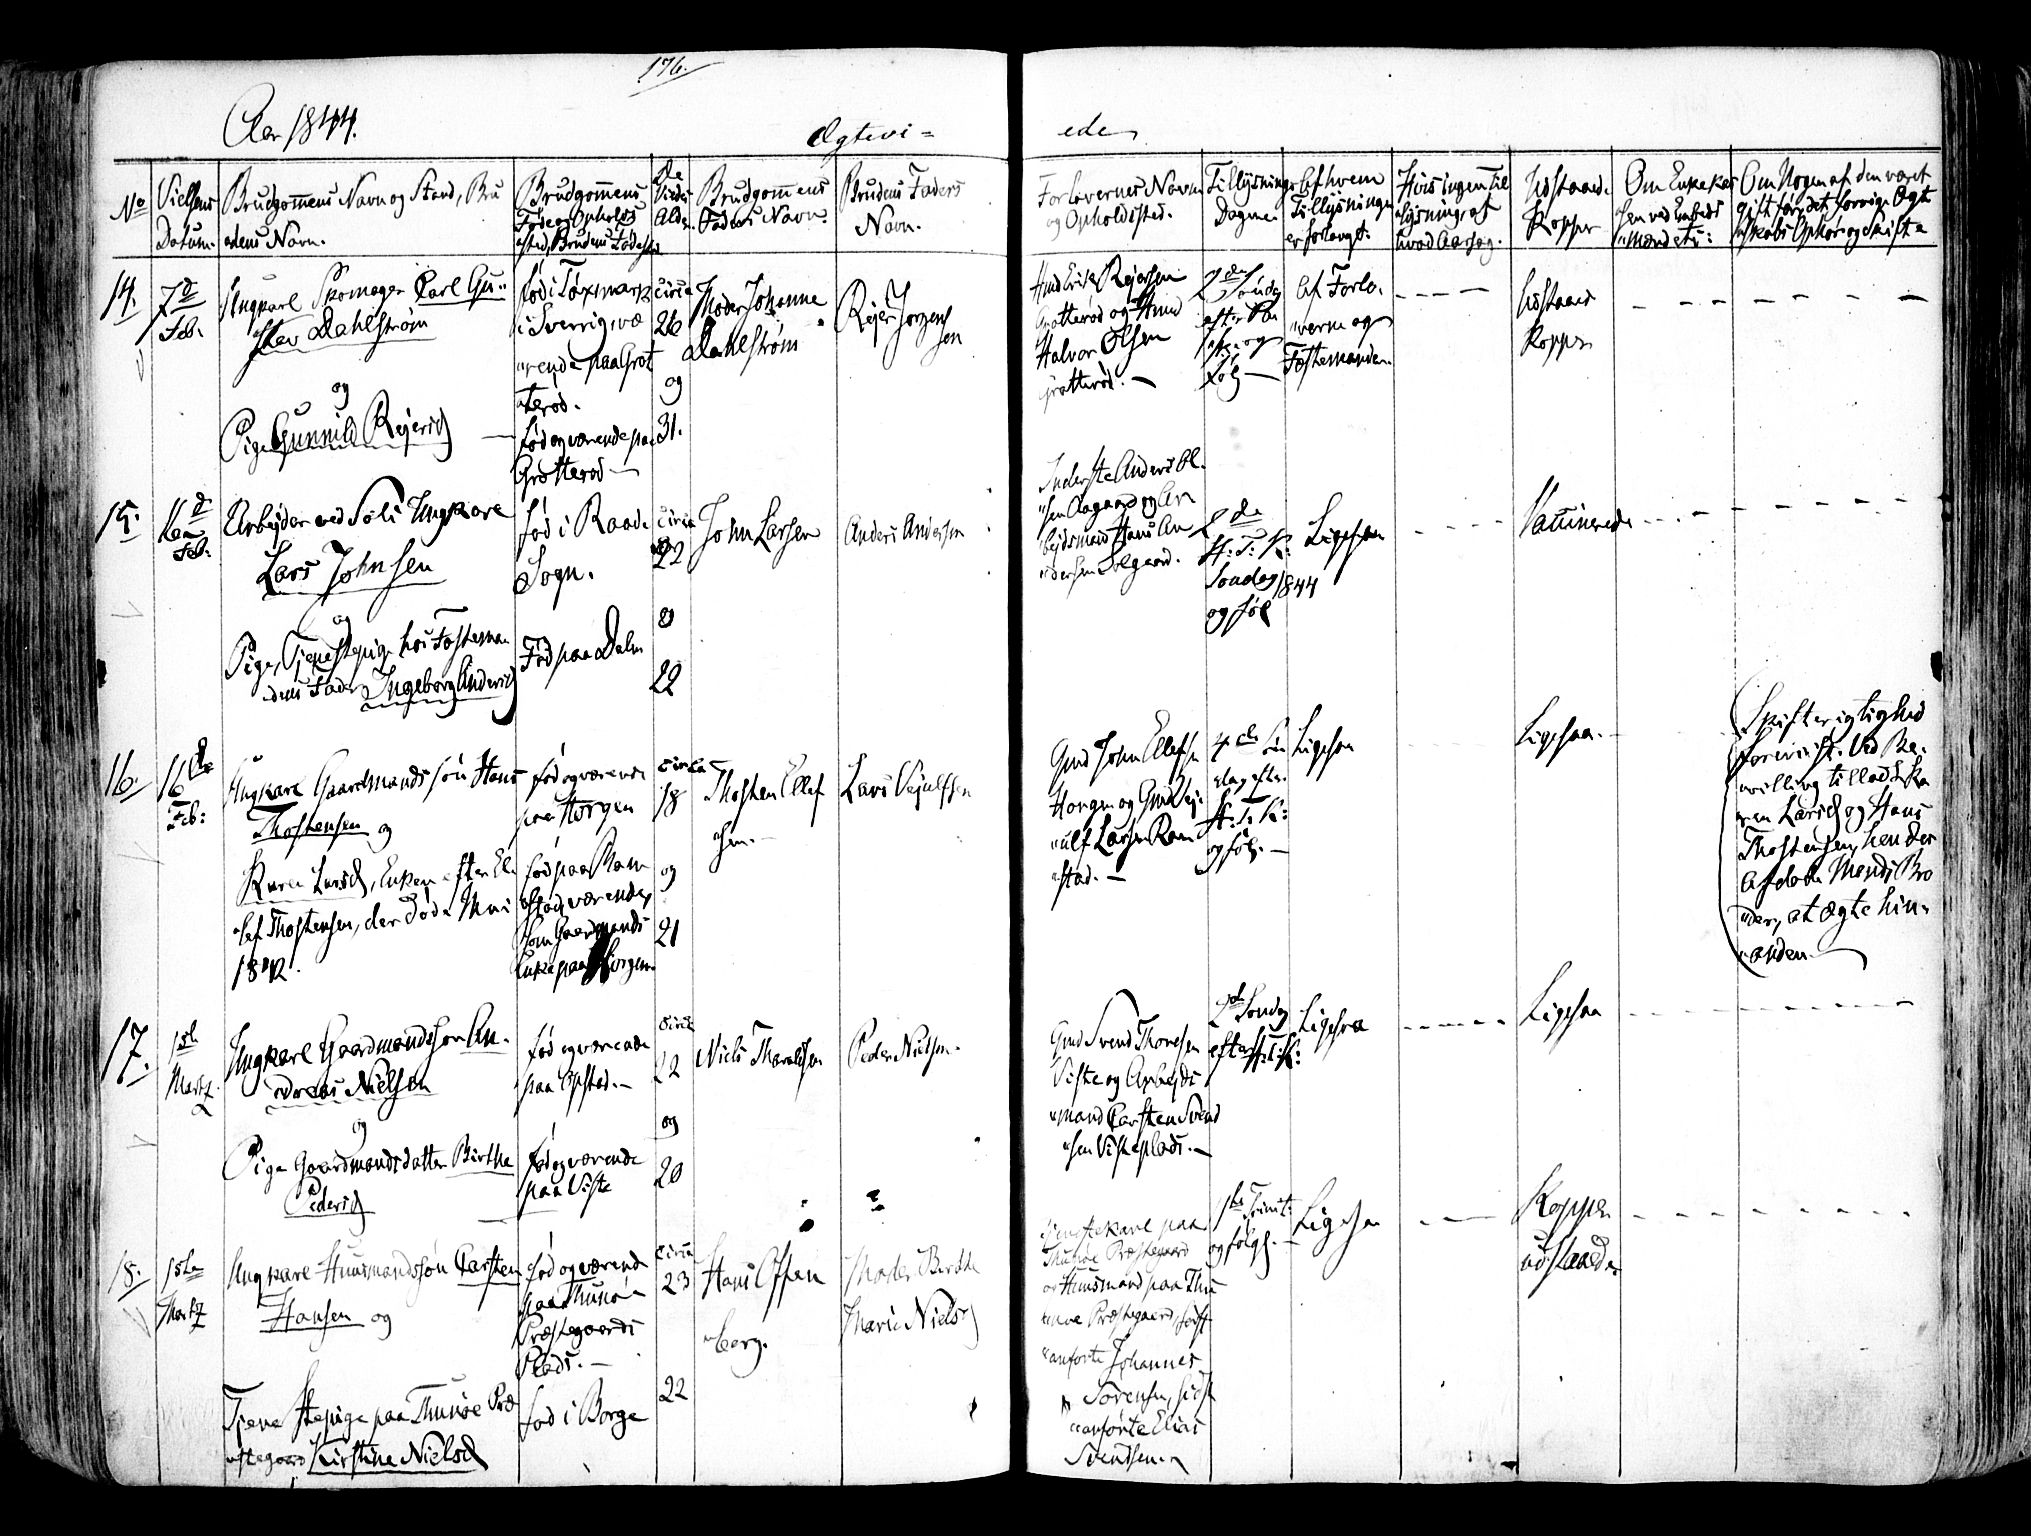 176.
Aar 1844.
Ægtevi=
ede
No
Vielsens Datum.
Brudgommens Navn og Stand, Brudens Navn.
Brudgommens Føde og Opholdssted, Brudens Fødested
De Viedes Alder.
Brudgommens Faders Navn.
Brudens Faders Navn.
Forlovernes Navn og Opholdssted.
Tillysnings Dagene
Af hvem Tillysningen er forlangt.
Hvis ingen Tillysning, af hvad Aarsag.
Udstaaede Kopper
Om Nogen af dem været gift før, det forrige Ægteskabs Ophør og Skifte
14.
7d
Feb.
Ungkarl Skomager Carl Gu=
stav Dahlstrøm
og
Pige Gunnild Rejersd
Fød i
i Sverrig, væ
rende paa Grot
terød.
fød og værende paa
Grotterød
circa
26
og
31.
Moder Johanne
Dahlstrøm
Rejer Jørgen
sen
Huusm. Erik Rejersen
Grotterød og Huusm
Halvor Olsen
Grotterød.
2de Søndag
efter Paa
ske og
følg
Af Forlo
verne og
Fæstemanden.
Udstaaed
Kopper
15.
Feb:
Arbejder ved Soli Ungkarl
Lars Johnsen
og
Pige, Tjenestepige hos Fæsteman
dens Fader Ingeborg Andersd
fød i Raade
Sogn.
Fød paa Dalen
circa
22
22
John Larsen
Anders Andersen
Inderste Anders Ol
sen Aagaard og Ar
bejdsmand Hans An
dersen Solgaard.
2de
H: T: K:
Søndag 1844
og føl
Ligesaa
Vaccinerede
16.
16de
Feb:
Ungkarl Gaardmands søn Hans
Thostensen og
Karen Larsd, Enken efter El
lef Thostensen, der døde Mai
1842.
fød og værende
paa Horgen
fød paa Ram
stad, værende,
som Gaardmands
Enke paa Horgen.
circa
18
og
21
Thosten Ellef
sen.
Lars Vejulfsen
Gmd John Ellefsen
Horgen og Gmd Vej
ulf Larsen Ram
stad.
4de Søn
dag efter
H: T: K:
og følg.
Ligesaa
Ligesaa.
Skifterigtighed
foreviist. Ved Be
villing tilladt Ka
ren Larsd og Hans
Thostensen, hendes
Afdøde Mands Bro
der, at ægte hin
anden.
17.
1ste
Martz
Ungkarl Gaardmandssøn An
dreas Nielsen
og
Pige Gaardmandsdatter Birthe
Pedersd
fød og værende
paa Opstad.
fød og værende
paa Viste
circa
22
og
20
Niels Tharaldsen
Peder Nielsen.
Gmd Svend Thoresen
Viste og Arbejds
mand Carsten Svend
sen Visteplads.
2de Søndag
efter H: T: K:
Ligesaa
Ligesaa
18.
15de
Martz
Ungkarl Huusmandssøn Carsten
Hansen og
Tjenestepige paa Thunøe Præ
stegaard Kirstine Nielsd
fød og værende
paa Thunøe
Præstegaards
Plads.
fød i Borge
circa
23
22
Hans Offen
berg.
Moder Berthe
Marie Nielsd
Tjenestekarl paa
Thunøe Præstegaard
og Huusmand paa Thu
nøe Præstegaard, først
anførte Johannes
Sørensen, sidst
anførte Elias
Svendsen.
1ste Trinit:
og følg.
Ligesaa
Kopper
udstaaede